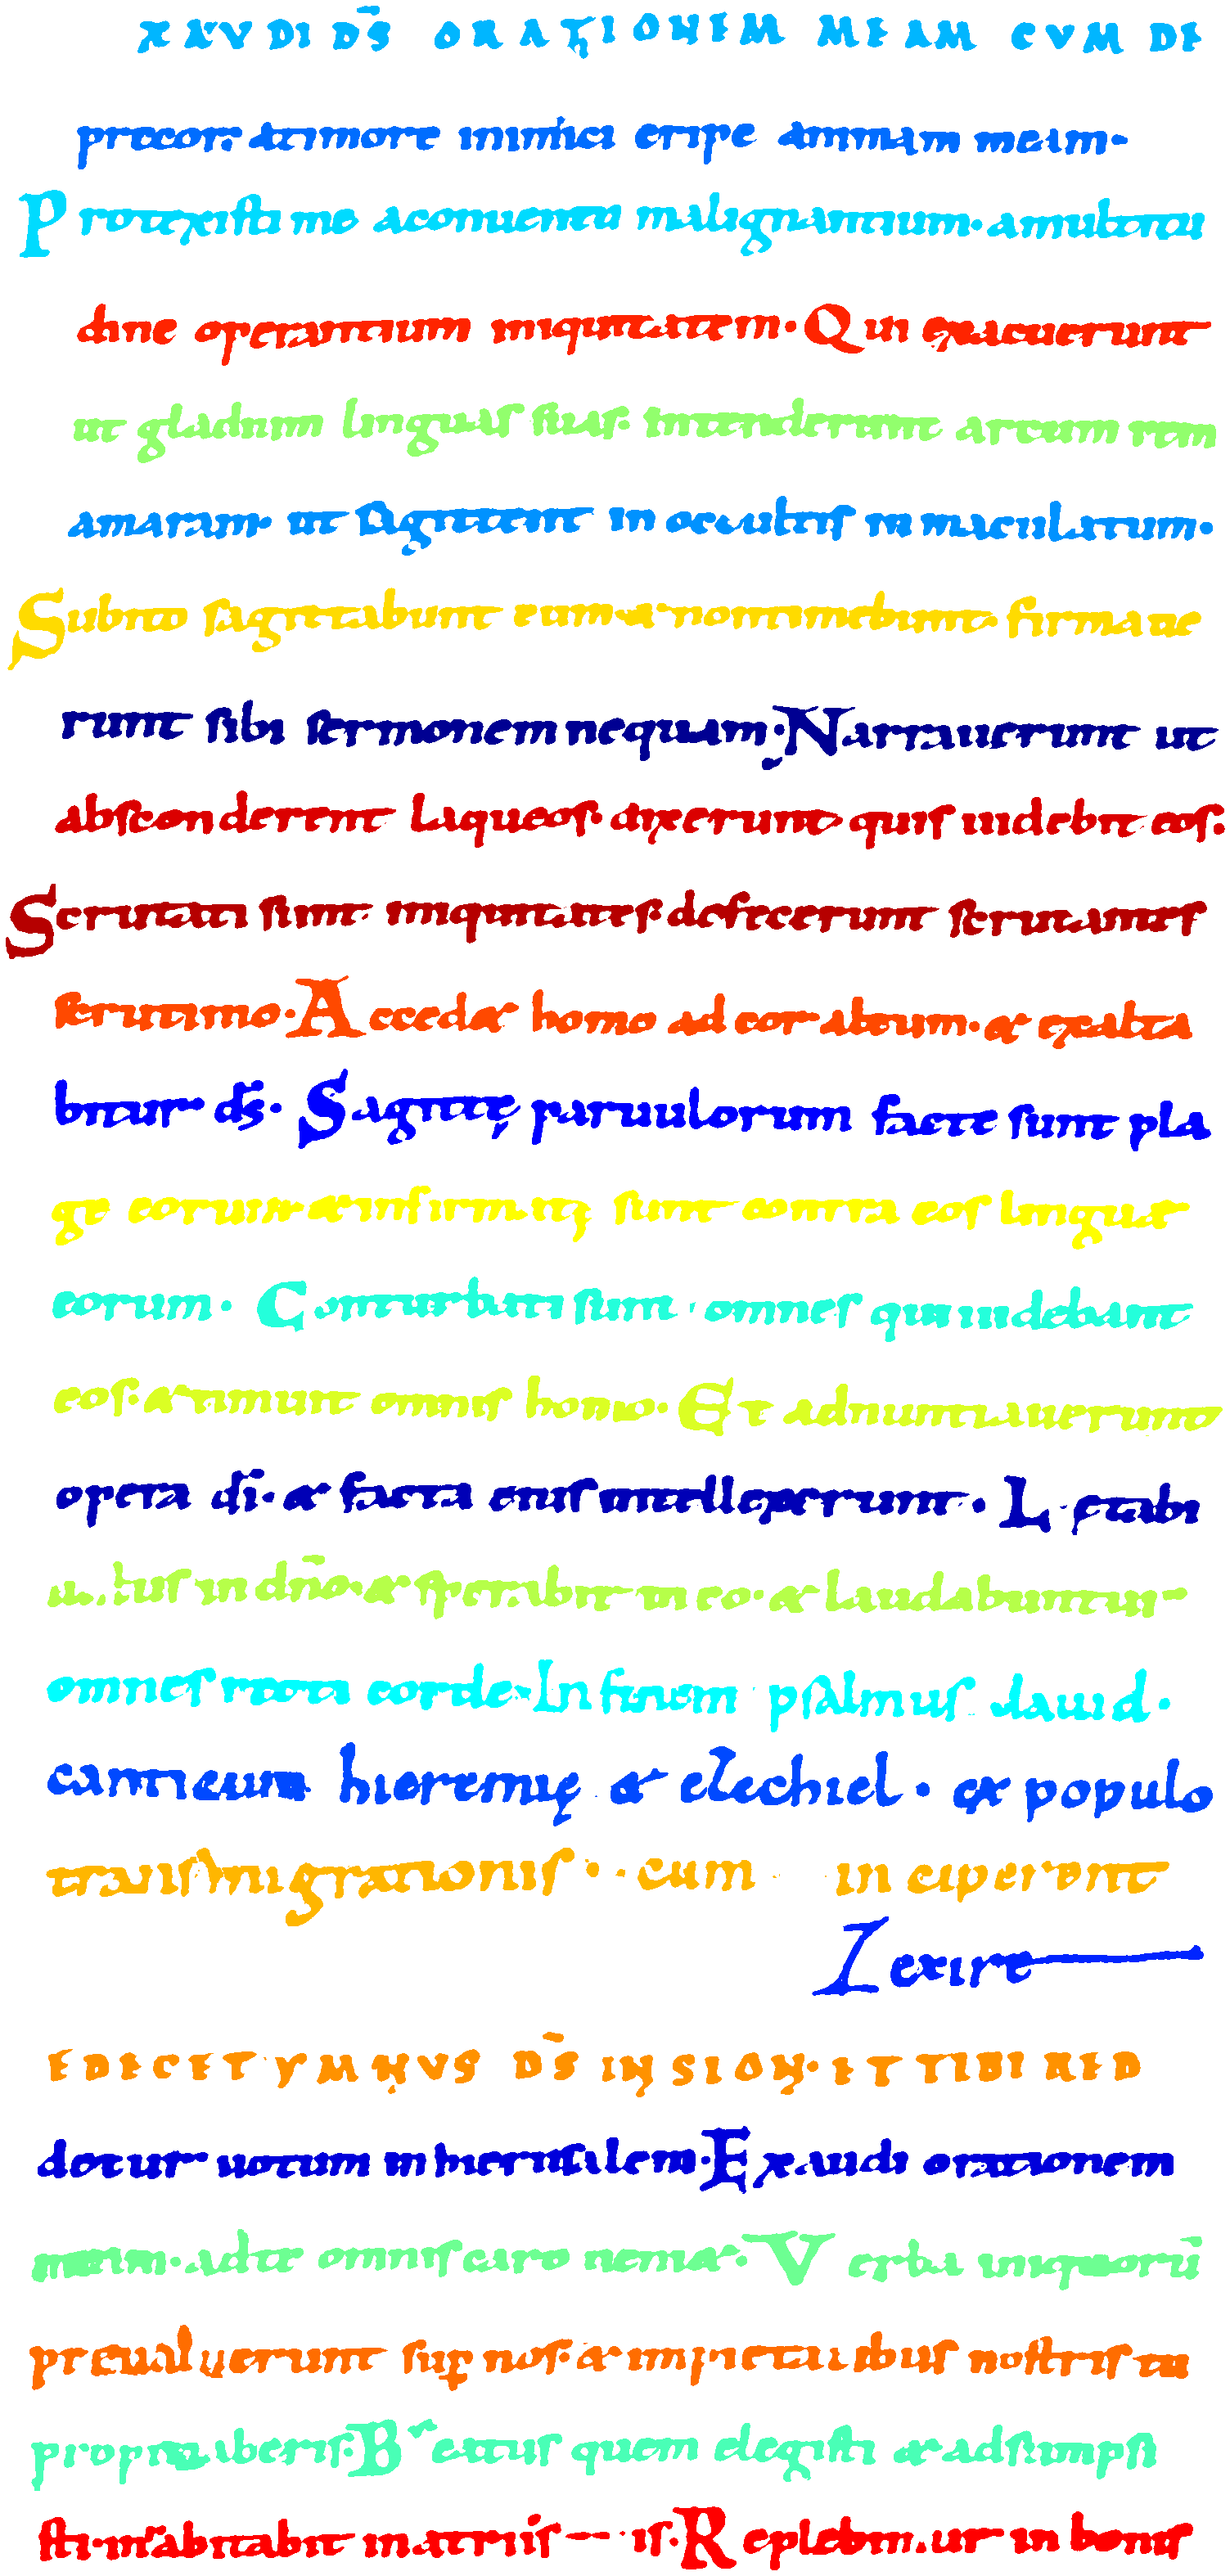 XAUDI DS̄ ORATIONEM MEAM CVM DE
precor. atimore inimici eripe animam meam.
Protexisti me aconuentu malignantium. amultitu
dine operantium iniquitatem. Qui exacuerunt
ut gladium linguas suas. intenderunt arcum rem
amaram. ut sagittent in occultis inmaculatum.
Subito sagittabunt eum. & nontimebunt. firmaue
runt sibi sermonem nequam. Narrauerunt ut
absconderent laqueos. dixerunt quis uidebit eos.
Scrutati sunt iniquitates. defecerunt scrutantes
scrutinio. Acced& homo ad cor altum. & exalta
bitur ds̄. Sagittę paruulorum facte sunt pla
ge eorum & infirmatę sunt contra eos linguae
eorum. Conturbati sunt omnes qui uidebant
eos. & timuit omnis homo. Et adnuntiauerunt
opera dī. & facta eius intellexerunt. Lętabi
tus in dn̄o. & sperabit in eo. & laudabuntur
omnes recti corde. In finem psalmus dauid.
canticum hieremię & ezechiel. ex populo
transmigrationis. cum inciperent
exire
E DECET YMNVS DS̄ IN SION. ET TIBI RED
detur uotum in hierusalem. Exaudi orationem
meam. adte omnis caro ueni&. Verba iniquorū
preualuerunt sup nos. & impietatibus nostris tu
propitiaberis. Beatus quem elegisti & adsumpsi
sti. inhabitabit inatriis is. Replebimur in bonis